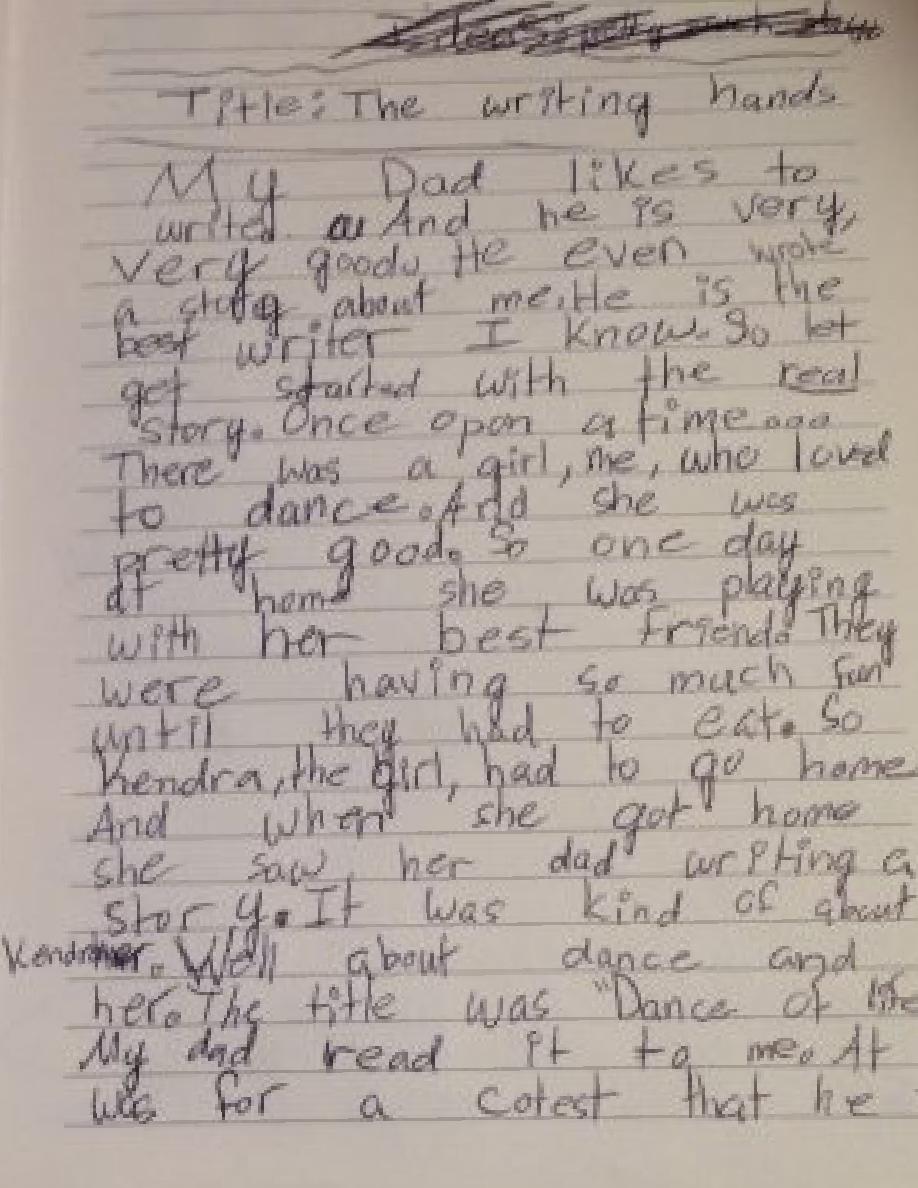 Title: The writing hands
My Dad likes to
writed And he is very,
very good. He even wrote
a story about me. He is the
best writer I know. So let
get started with the real
story. Once opon a time....
There was a girl, me, who loved
to dance. And she was
pretty good. So one day
at home she was playing
with her best friend. They
were having so much fun
until they had to eat. So
Kendra, the girl, had to go home.
And when she got home
she saw her dad writing a
story. It was kind of about
Kendra. Well about dance and
her. The title was "Dance of life
My dad read it to me. At
was for a cotest that he